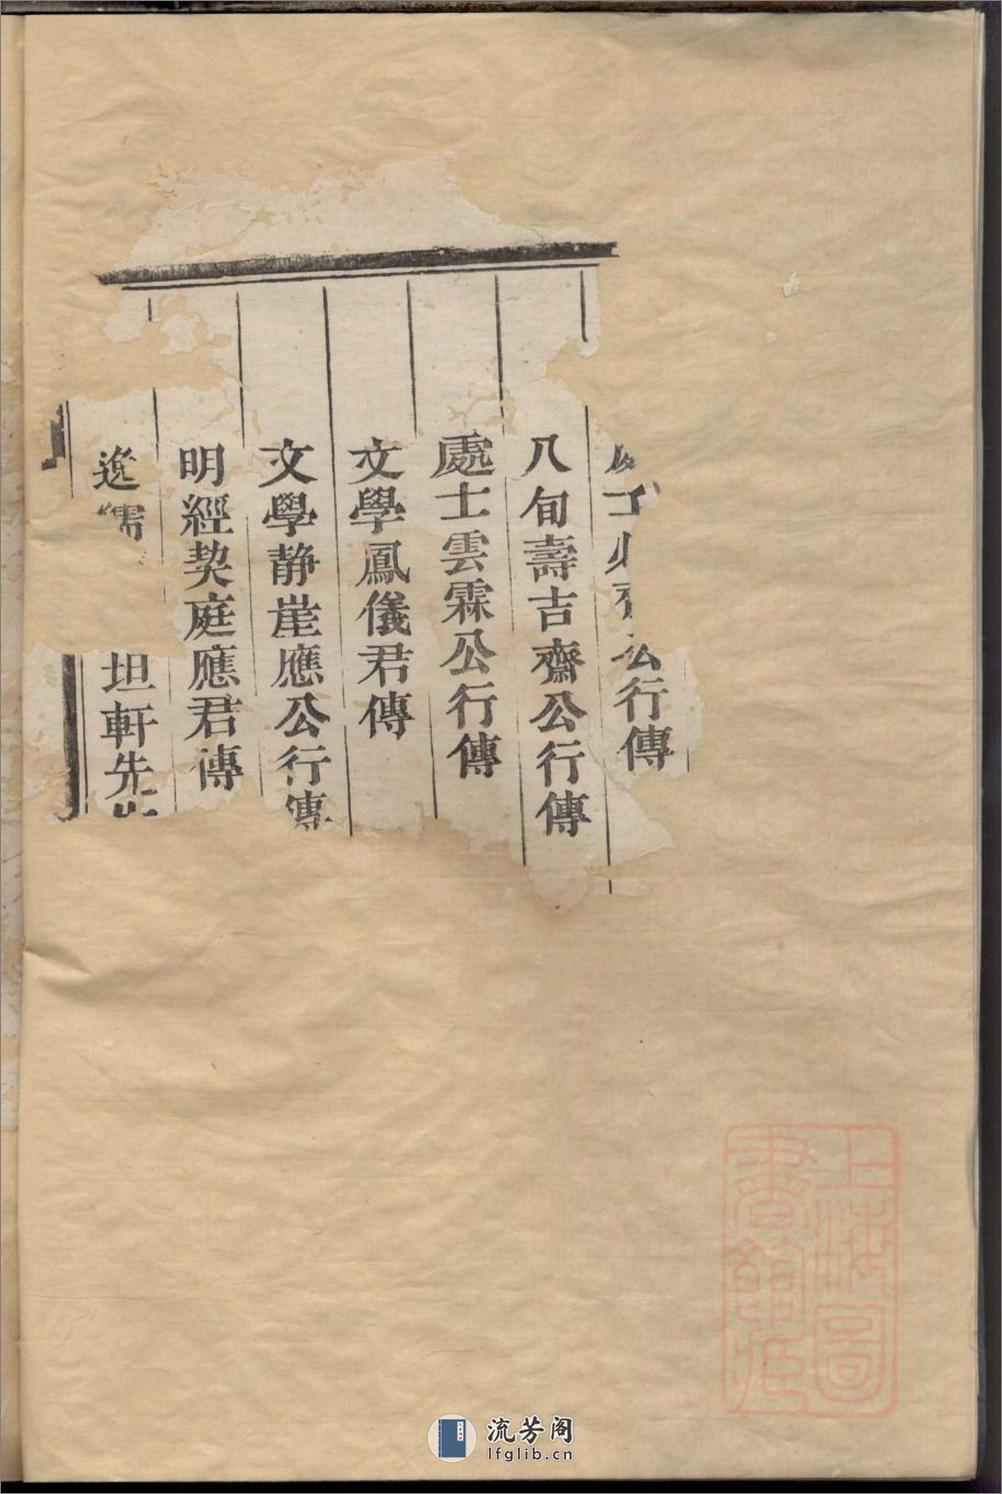 公行傳
八旬壽吉齋公行傳
處士雲霖公行傳
文學鳳儀君傳
文學靜崖應公行傳
明經契庭應君傳
逸儒
坦軒先
上海圖
書館藏
流芳阁
lfglib.cn